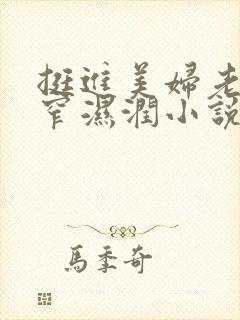 挺進美婦老
窄濕潤小說
馬季奇